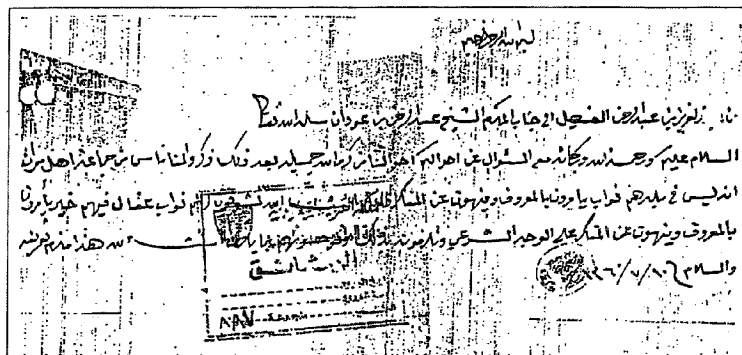 بسم الله الرحمن الرحيم
من عبدالعزيز بن عبدالرحمن الفيصل الى جناب المكرم الشيخ عبدالرحمن بن عودان سلمه الله تعالى
السلام عليكم ورحمة الله وبركاته مع السؤال عن احوالكم احوالنا من كرم الله جميله بعد ذلك ذكروا لنا ناس من جماعة اهل
ان ليس في بلدهم نواب يأمرون بالمعروف وينهون عن المنكر نواب عقال فيهم خير يأمرون
بالمعروف وينهون عن المنكر على الوجه الشرعي وتلزمونهم بذلك الله هذا ما لزم تعريفه
والسلام ١٣٦٠/٧/١٠
٨٨٧